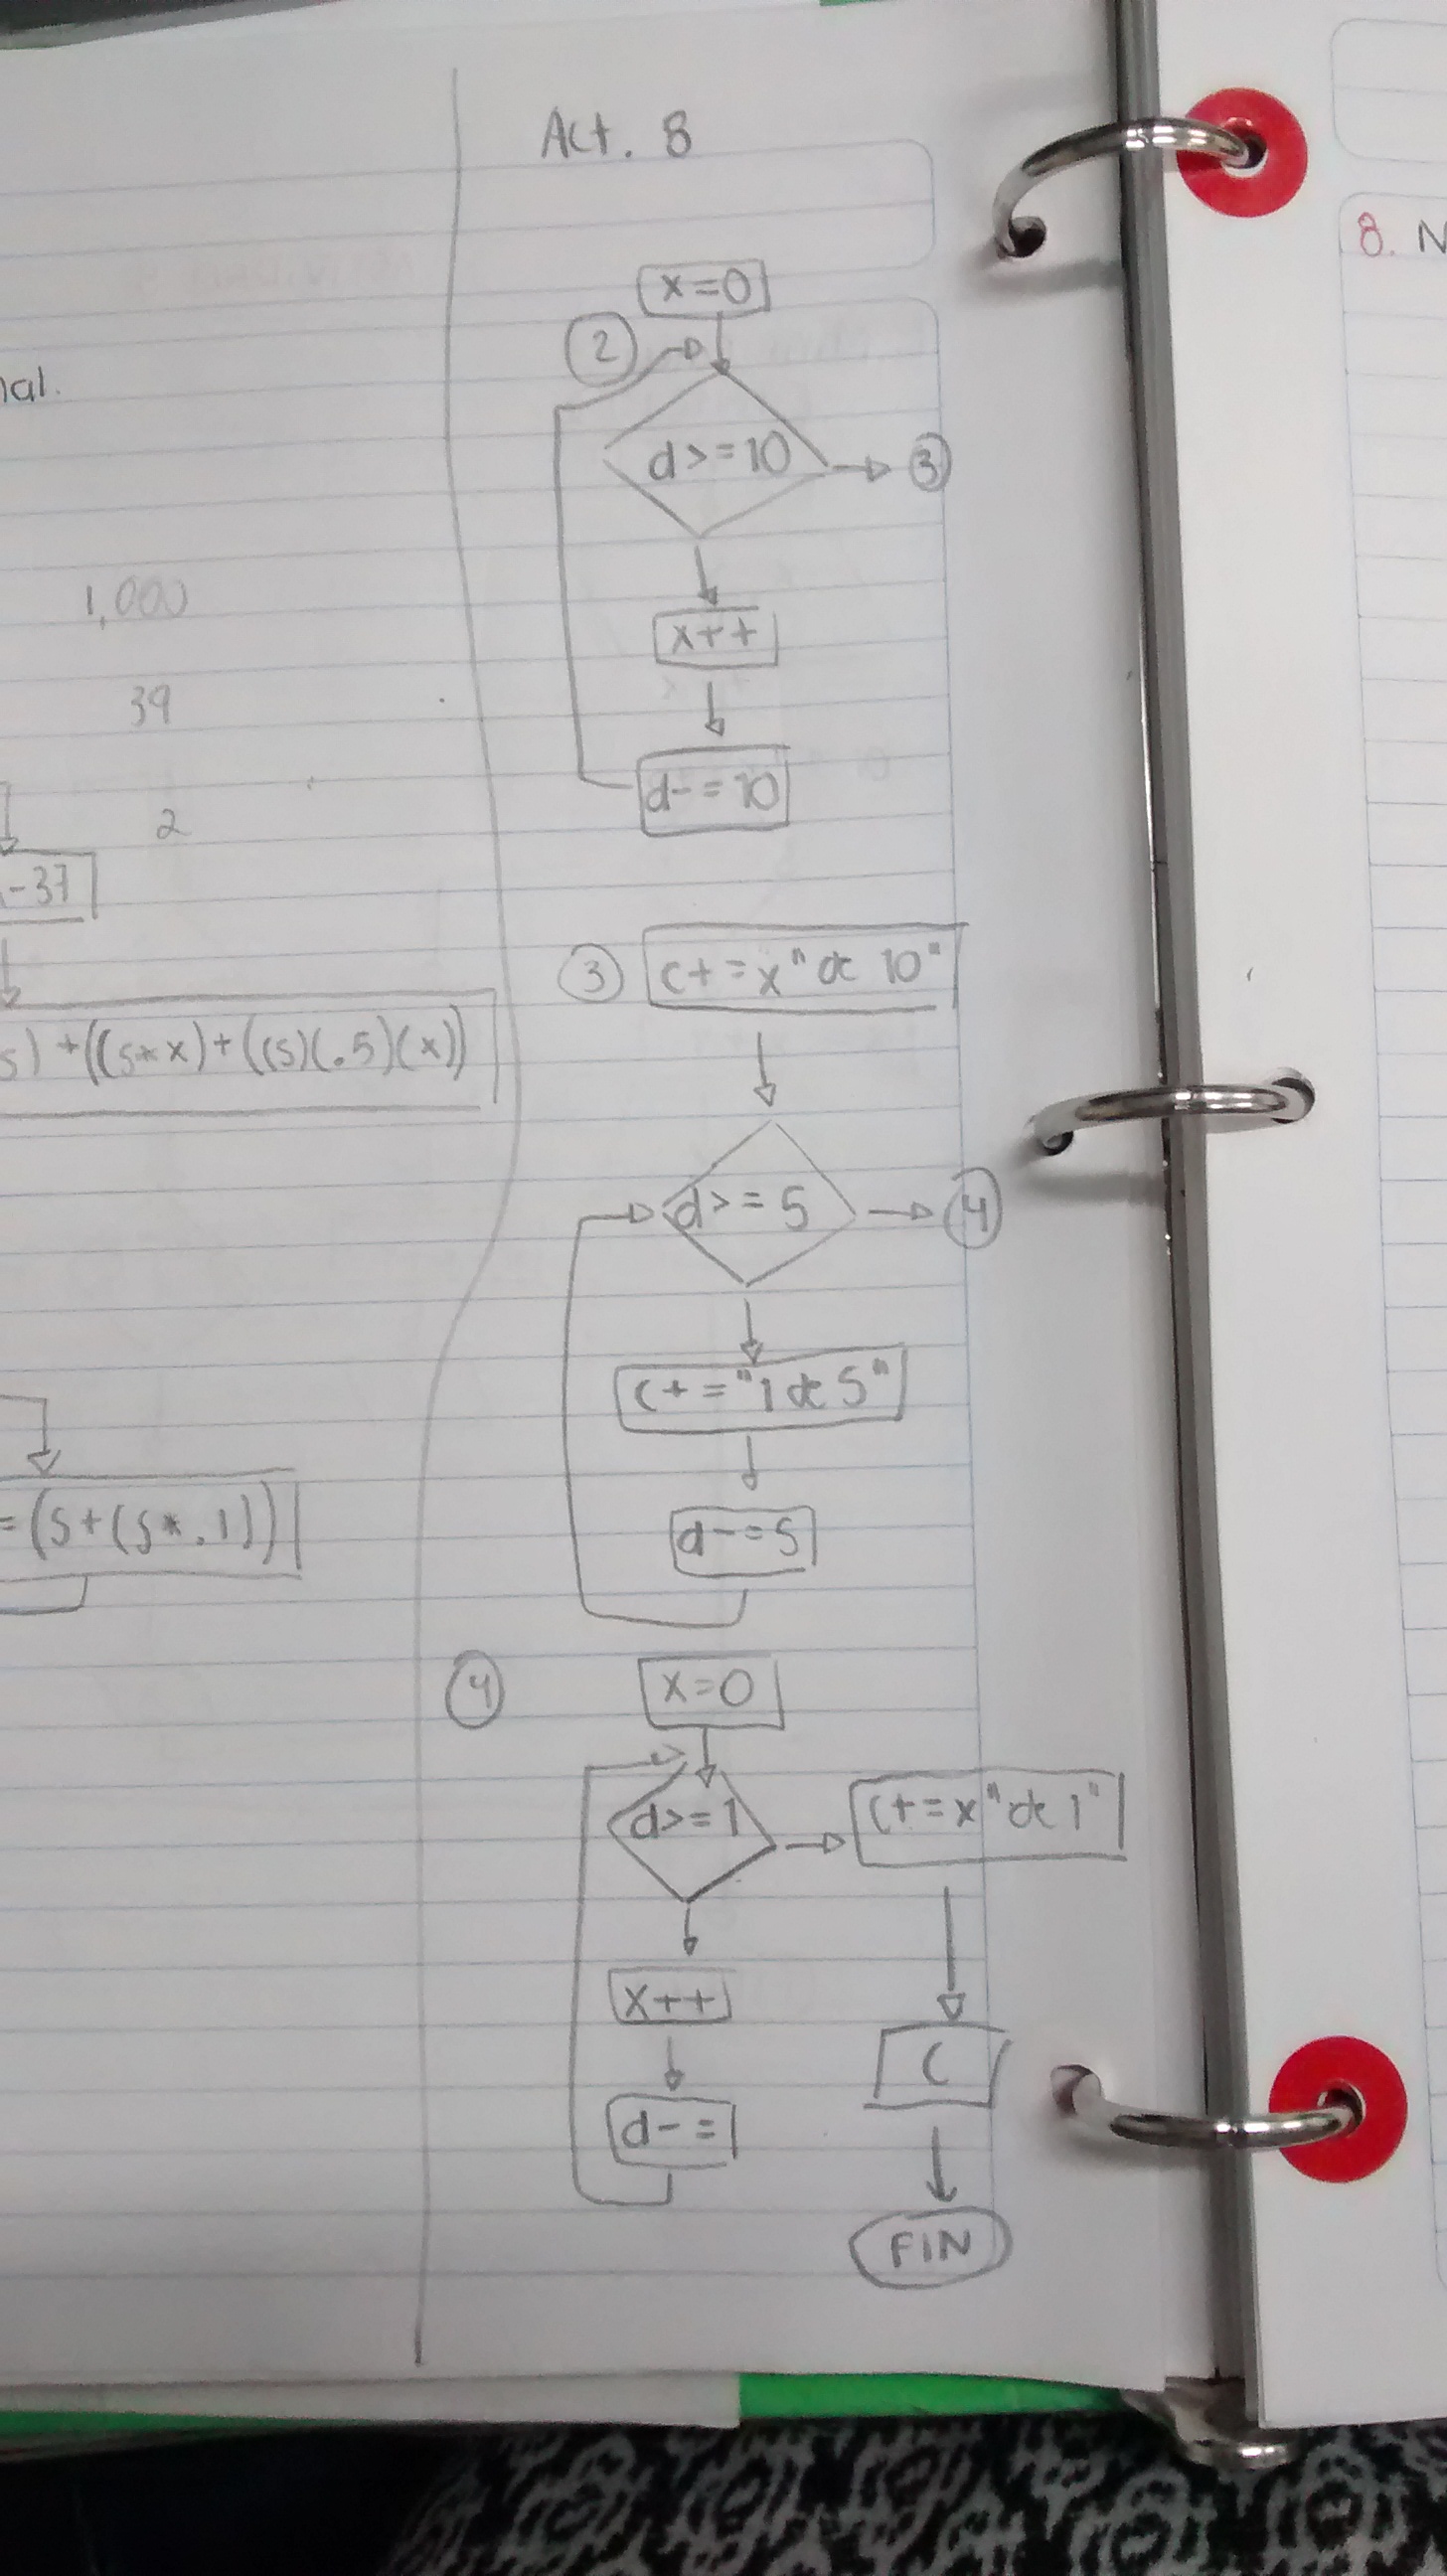 Act. 8
nal.
1,000
39
2
-37
s) + ((s*x) + ((s)(.5)(x))
= (s+(s*.1))
x=0
2
d>=10
3
x++
d-=10
3
c+=x"de 10"
d>=5
4
c+="1 de 5"
d-=5
4
x=0
d>=1
c+=x"de 1"
x++
c
d-=
FIN
8. N